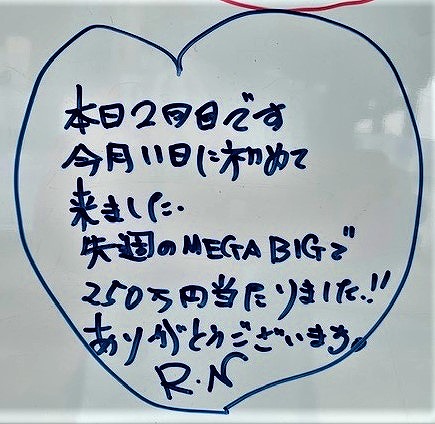 本日2回目です
今月11日に初めて
来ました.
先週のMEGA BIGで
250万円当たりました!!
ありがとうございます。
R.N